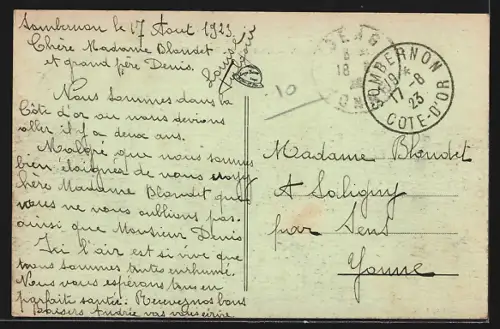 Sombernon le 17 Aout 1923
Chère Madame Blondet
et grand père Denis.
Nous sommes dans la
Côte d'or ou nous devions
aller il y a deux ans.
Malgré que nous sommes
bien éloignés de vous
chère Madame Blondet que
vous ne vous oublions pas.
ainsi que Monsieur Denis
Ici l'air est si vive que
nous sommes toutes enrhumé.
Nous vous espérons tous en
parfaite santée. Recevez nos bons
baisers Andrée vas vous écrire
10
SENS
18
YONNE
SOMBERNON
17-8
23
COTE-D'OR
Madame Blondet
A Saligny
par Sens
Yonne